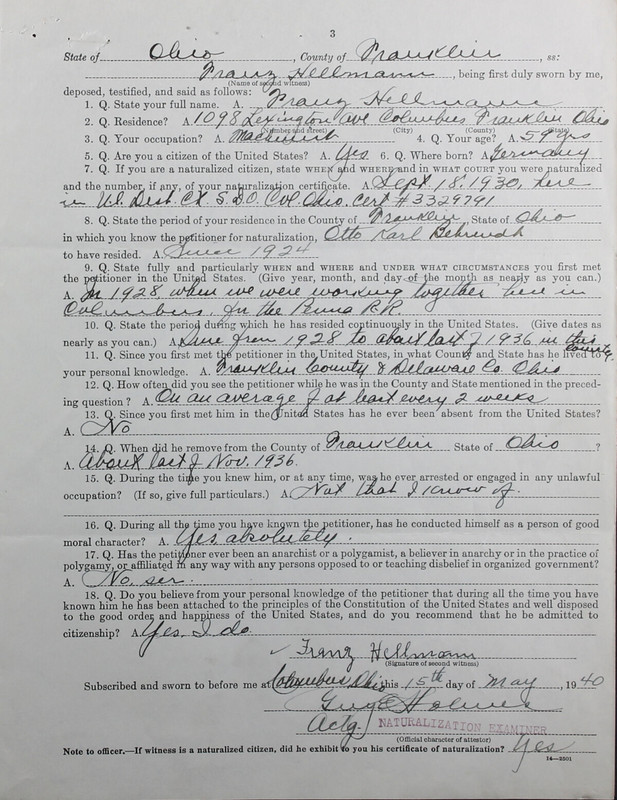 3
State of Ohio, County of Franklin, ss:
Franz Hellmann, being first duly sworn by me,
(Name of second witness)
deposed, testified, and said as follows:
1. Q. State your full name. A. Franz Hellmann
2. Q. Residence? A. 1098 Lexington Ave Columbus Franklin Ohio
(Number and street) (City) (County) (State)
3. Q. Your occupation? A. Machinist 4. Q. Your age? A. 59 yrs
5. Q. Are you a citizen of the United States? A. Yes 6. Q. Where born? A. Germany
7. Q. If you are a naturalized citizen, state WHEN and WHERE and in WHAT COURT you were naturalized
and the number, if any, of your naturalization certificate. A. Sept. 18, 1930, here
in U.S. Dist. Ct. S.D.O. Col. Ohio. Cert # 3329791
8. Q. State the period of your residence in the County of Franklin, State of Ohio
in which you know the petitioner for naturalization, Otto Karl Behrendt
to have resided. A. Since 1924
9. Q. State fully and particularly WHEN and WHERE and UNDER WHAT CIRCUMSTANCES you first met
the petitioner in the United States. (Give year, month, and day of the month as nearly as you can.)
A. In 1928, when we were working together here in
Columbus, for the Penna R.R.
10. Q. State the period during which he has resided continuously in the United States. (Give dates as
nearly as you can.) A. Since from 1928 to about last of 1936 in this
County
11. Q. Since you first met the petitioner in the United States, in what County and State has he lived to
your personal knowledge. A. Franklin County & Delaware Co. Ohio
12. Q. How often did you see the petitioner while he was in the County and State mentioned in the preced-
ing question? A. On an average of at least every 2 weeks
13. Q. Since you first met him in the United States has he ever been absent from the United States?
A. No
14. Q. When did he remove from the County of Franklin State of Ohio ?
A. About last of Nov. 1936.
15. Q. During the time you knew him, or at any time, was he ever arrested or engaged in any unlawful
occupation? (If so, give full particulars.) A. Not that I know of.
16. Q. During all the time you have known the petitioner, has he conducted himself as a person of good
moral character? A. Yes absolutely.
17. Q. Has the petitioner ever been an anarchist or a polygamist, a believer in anarchy or in the practice of
polygamy, or affiliated in any way with any persons opposed to or teaching disbelief in organized government?
A. No, sir.
18. Q. Do you believe from your personal knowledge of the petitioner that during all the time you have
known him he has been attached to the principles of the Constitution of the United States and well disposed
to the good order and happiness of the United States, and do you recommend that he be admitted to
citizenship? A. Yes, I do.
Franz Hellmann
(Signature of second witness)
Subscribed and sworn to before me at Columbus Ohio this 15th day of May, 1940
Holmes
Actg. NATURALIZATION EXAMINER
(Official character of attestor)
Note to officer.—If witness is a naturalized citizen, did he exhibit to you his certificate of naturalization? Yes
14—2501